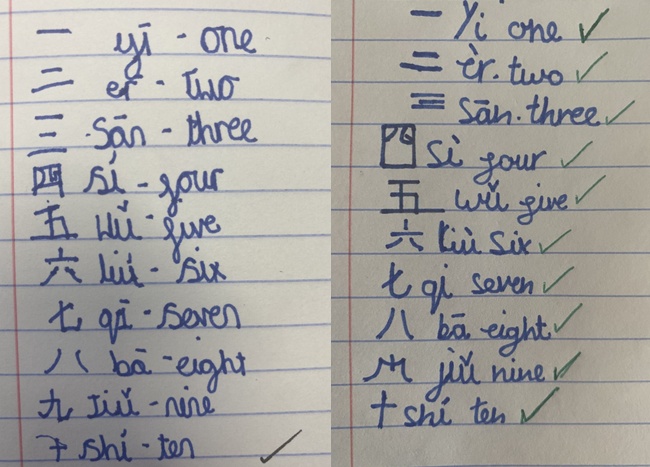 一 yī - one
二 er - two
三 sān - three
四 sí - four
五 Wǔ - five
六 liú - six
七 qī - seven
八 bā - eight
九 Jiǔ - nine
十 shí - ten
一 Yi one
二 èr. two
三 sān. three
四 sì four
五 wǔ five
六 liù six
七 qi seven
八 bā eight
jiǔ nine
十 shí ten